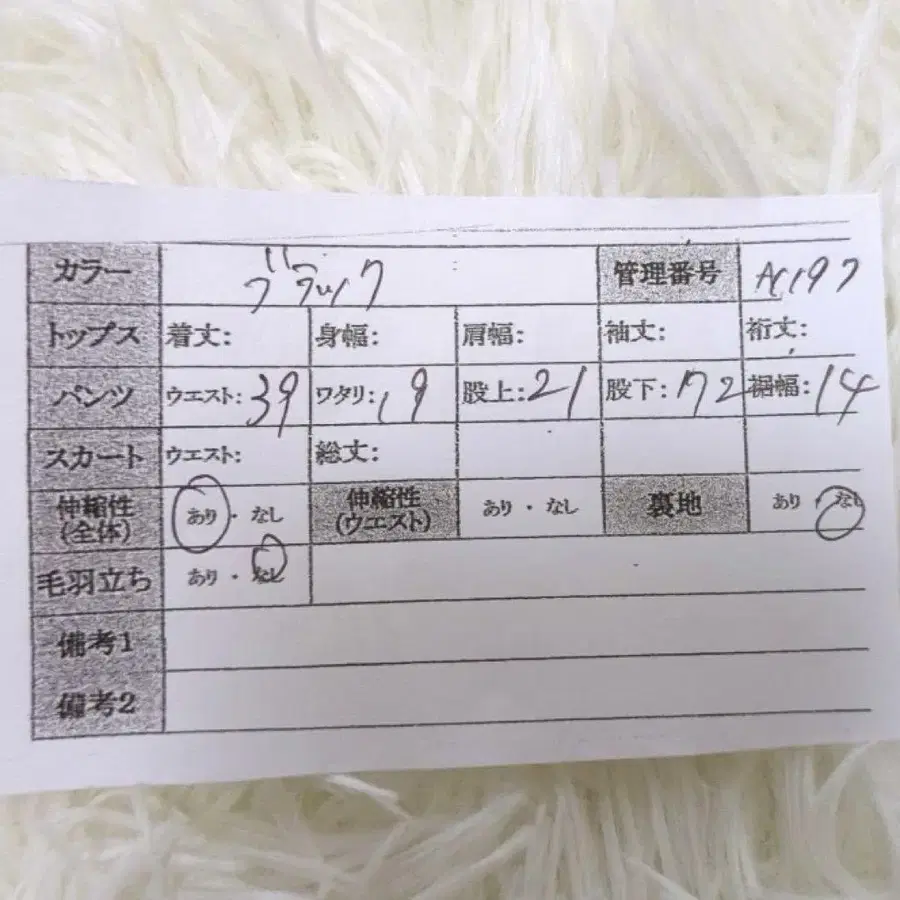 カラー ブラック 管理番号 AC197
トップス 着丈: 身幅: 肩幅: 袖丈: 裄丈:
パンツ ウエスト: 39 ワタリ: 19 股上: 21 股下: 72 裾幅: 14
スカート ウエスト: 総丈:
伸縮性 あり・なし 伸縮性 あり・なし 裏地 あり・なし
(全体) (ウエスト)
毛羽立ち あり・なし
備考1
備考2